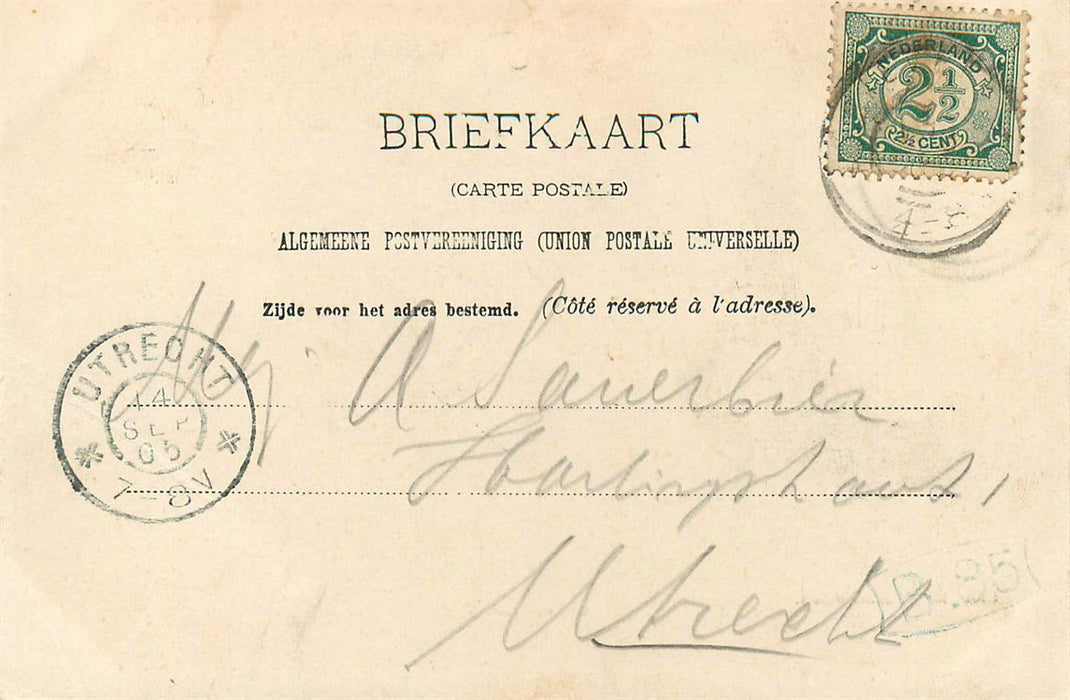 NEDERLAND
2½
2½ CENT
4-8
BRIEFKAART
(CARTE POSTALE)
ALGEMEENE POSTVEREENIGING (UNION POSTALE UNIVERSELLE)
Zijde voor het adres bestemd. (Côté réservé à l'adresse).
UTRECHT
14
SEP
05
7-8V
Mej A Sauerbier
Utrecht